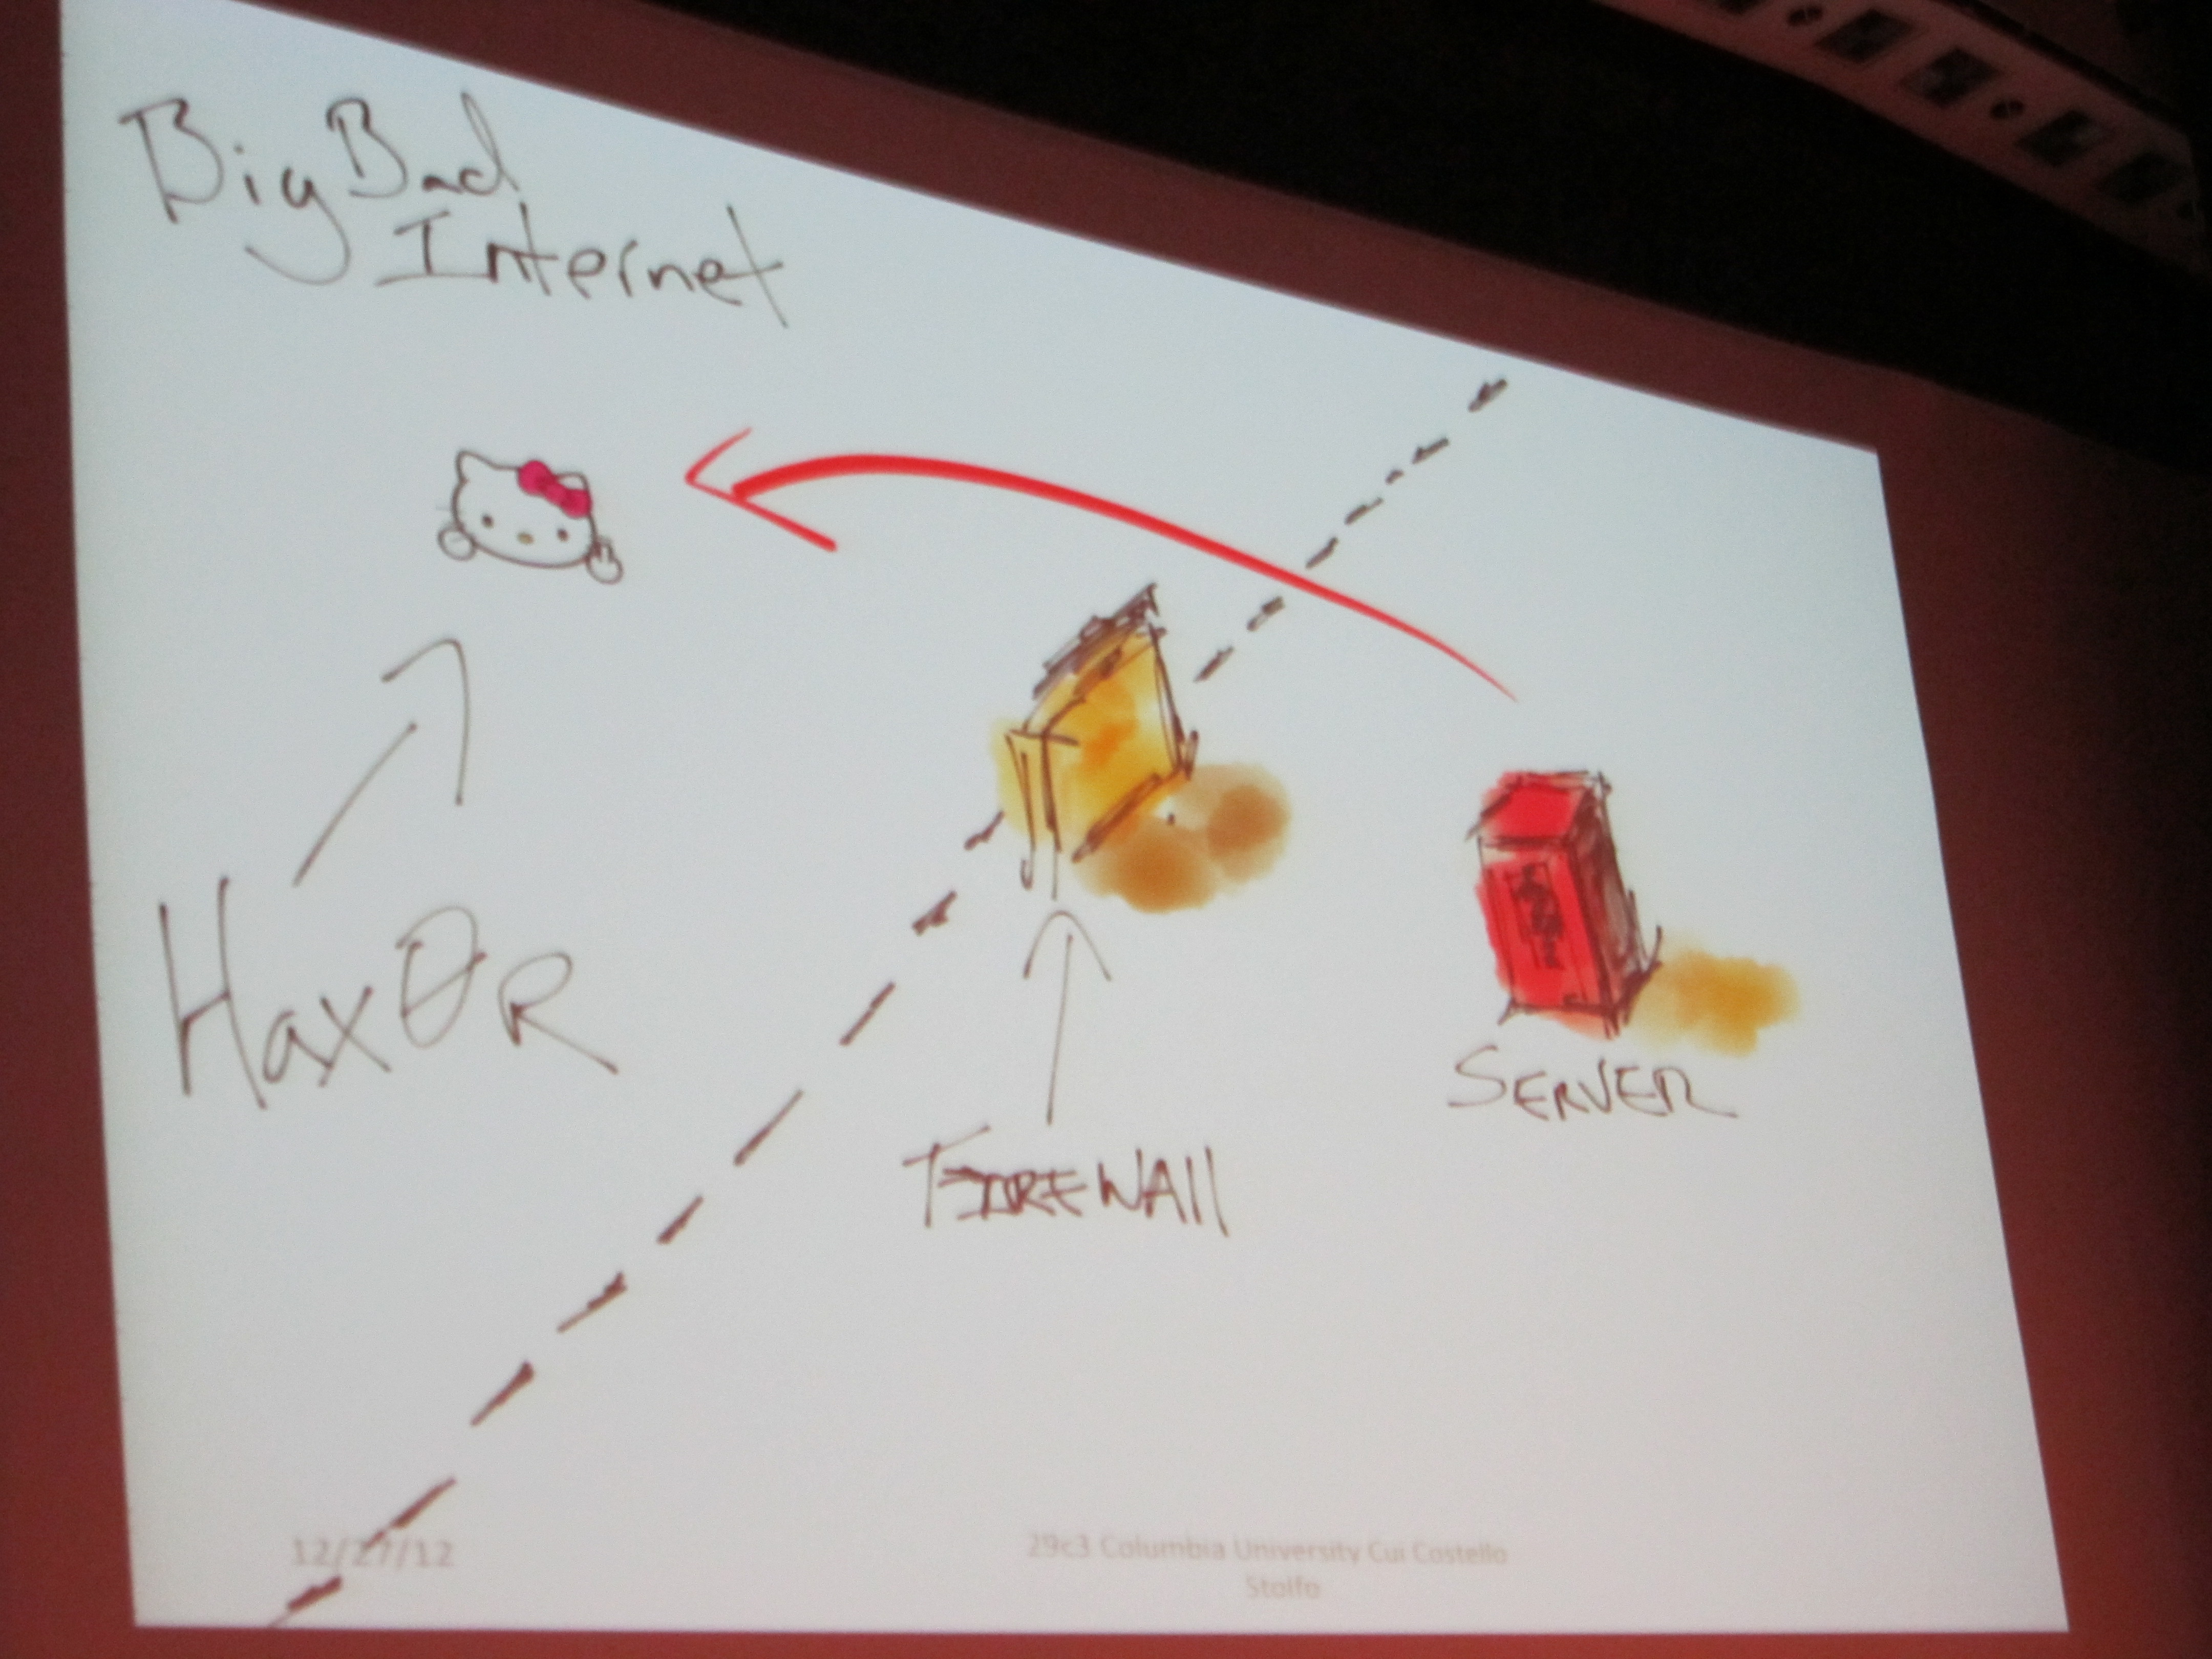 Big Bad
Internet
HaxØR
FIREWAll
SERVER
12/27/12
29c3 Columbia University Cui Costello
Stolfo